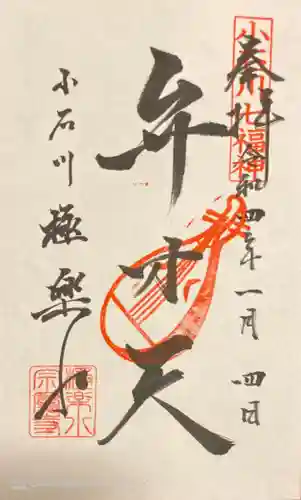 奉拝
令和四年一月四日
小石川七福神
弁才天
小石川極楽水
極楽水
宗慶寺